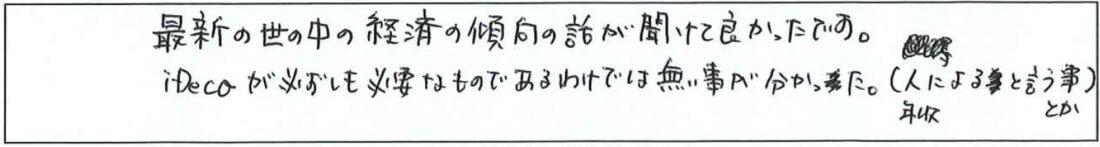 最新の世の中の経済の傾向の話が聞けて良かったです。
iDecoが必ずしも必要なものであるわけでは無い事が分かった。(人によると言う事)
年収 とか